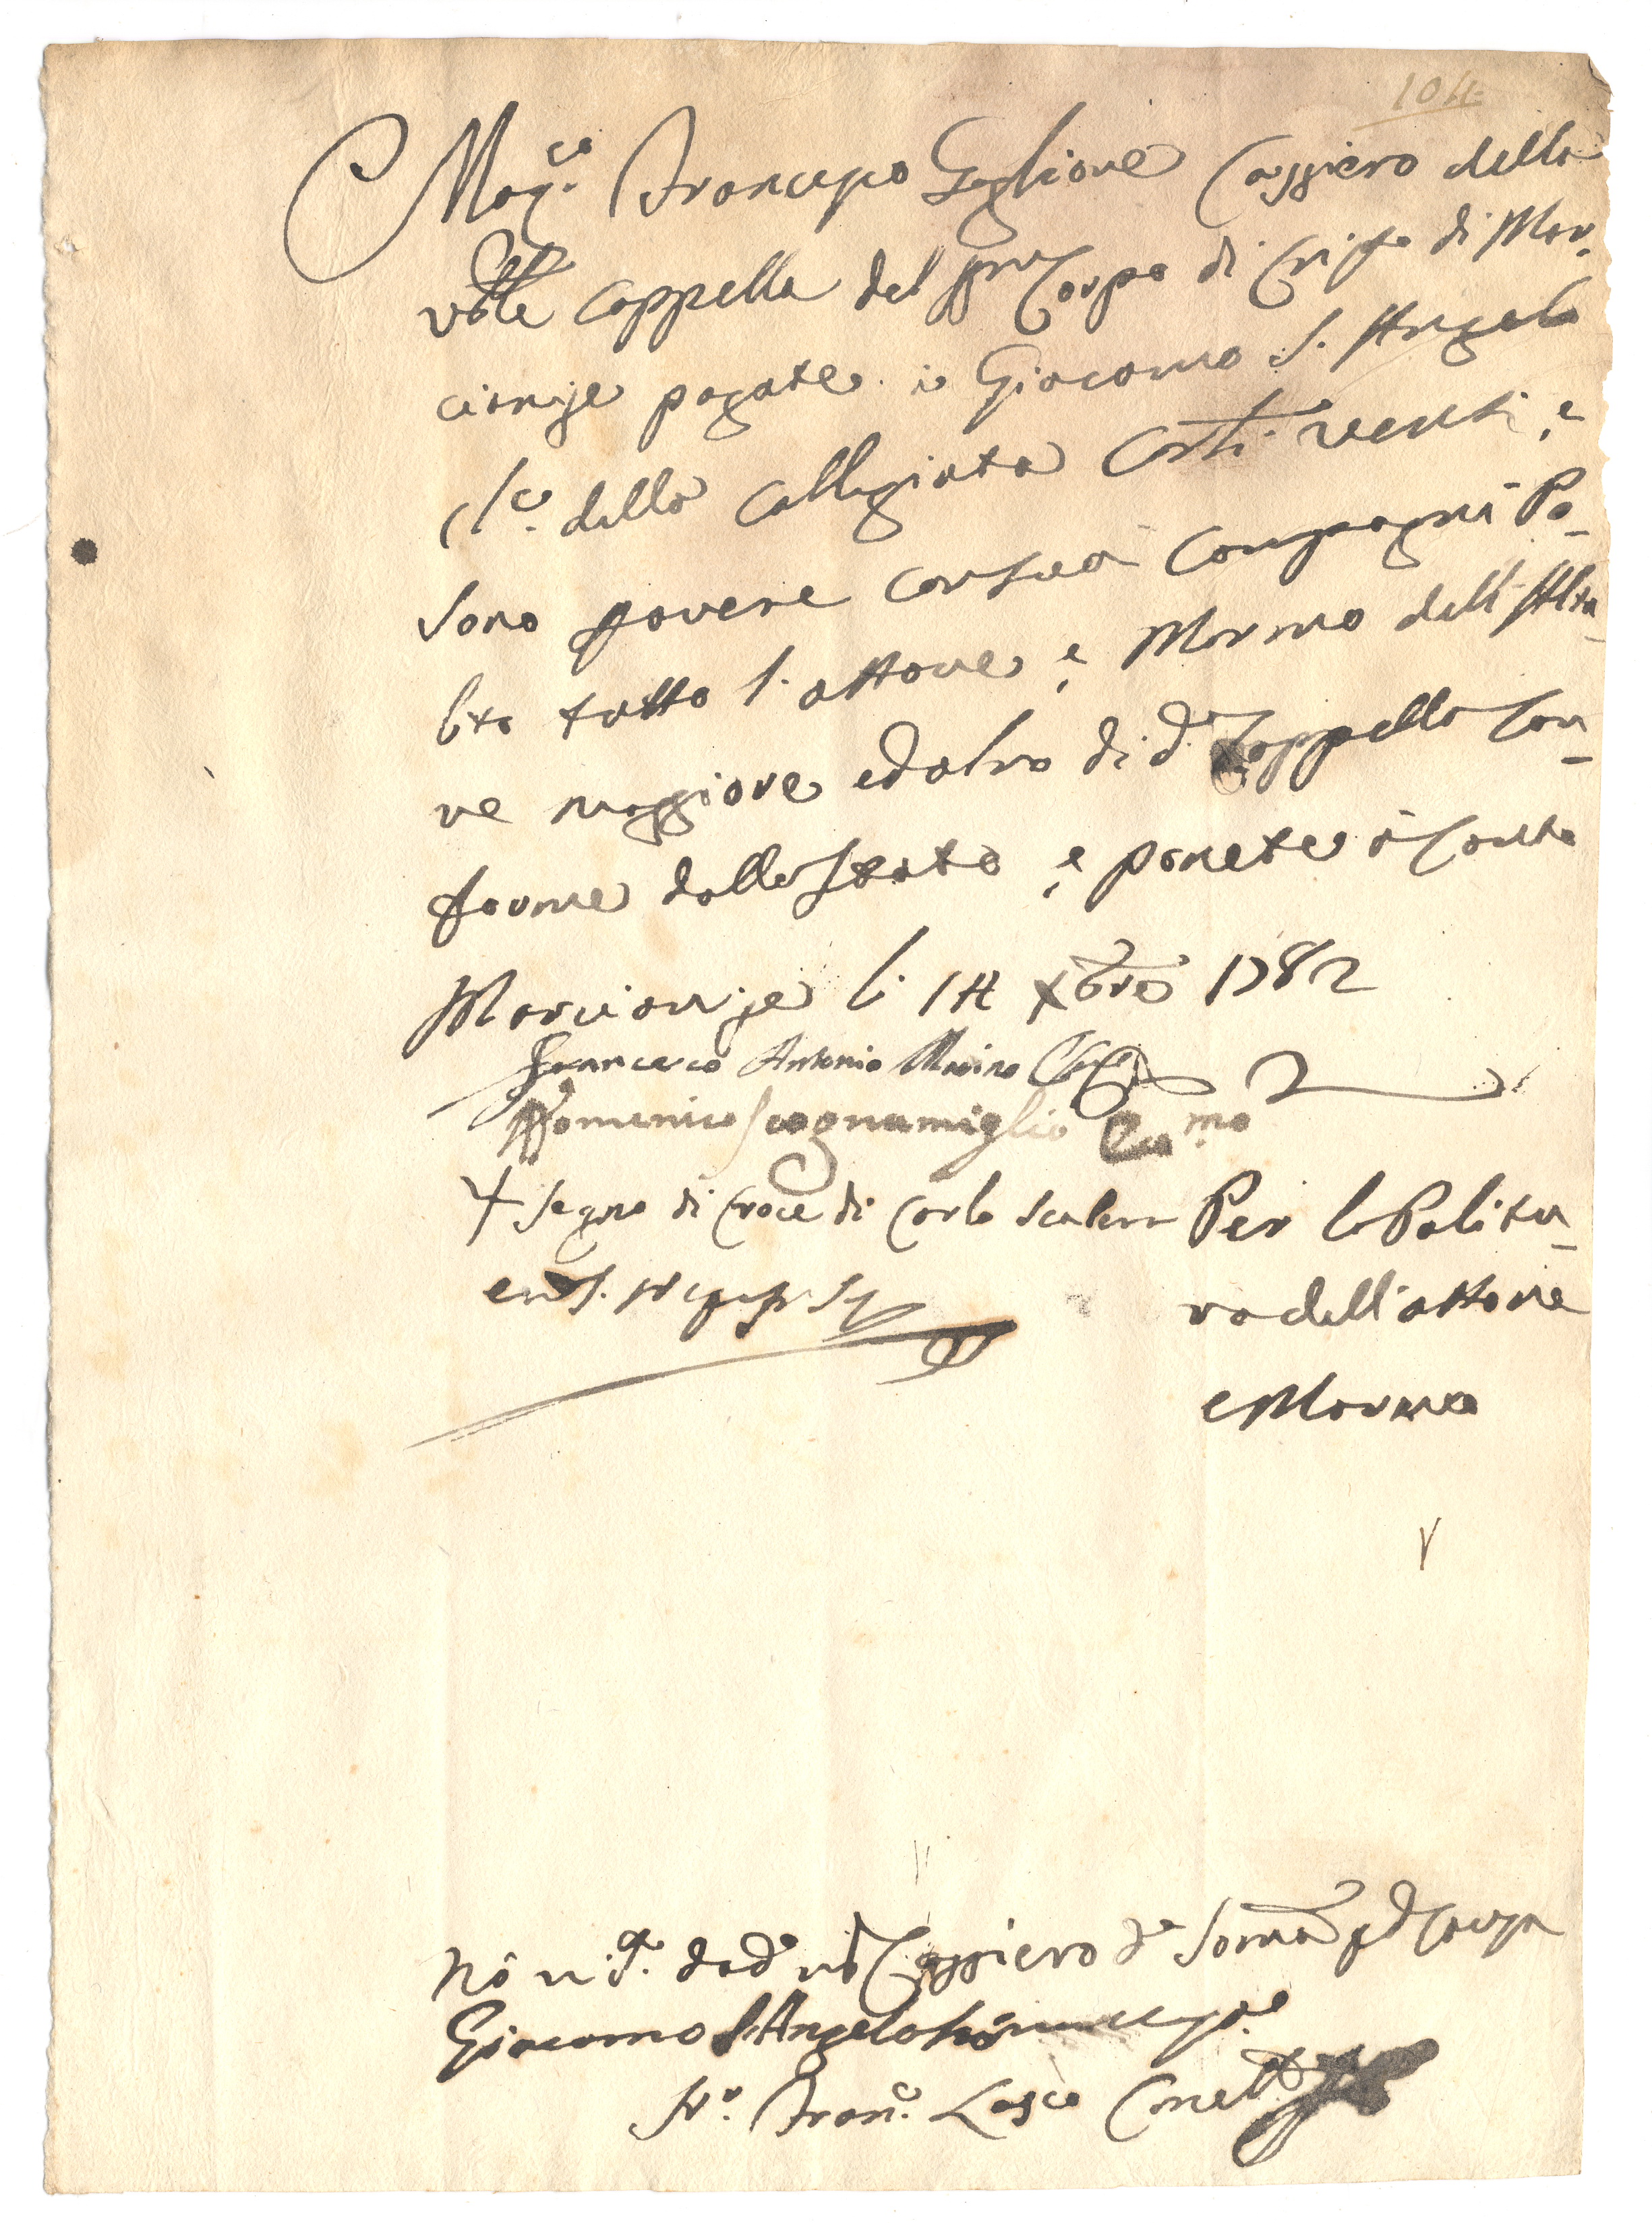 104
Mag.co Francesco Guglione Cassiero della
vble Cappella del SSmo Corpo di Cristo di Mar-
cianise pagate à Giacomo S. Angelo
Clc. della Collegiata Carti venti, e
sono per avere con suoi Compagni Po-
lito tutto l'ottone, e Marmo dell'Alta-
re maggiore ed altro di d.a Cappella Con-
forme dalla Lista, e ponete à Conto
Marcianise li 14 Xbre 1782
Francesco Antonio Marino
Domenico Scognamiglio Eco.mo
+ Segno di Croce di Carlo Scalera
Per la Politu-
ra dell'ottone
e Marmo
Hò ric.to da d.o Cassiero d.a Somma
Giacomo S. Angelo hò ricevuto
Nr. Fran.co Lasco